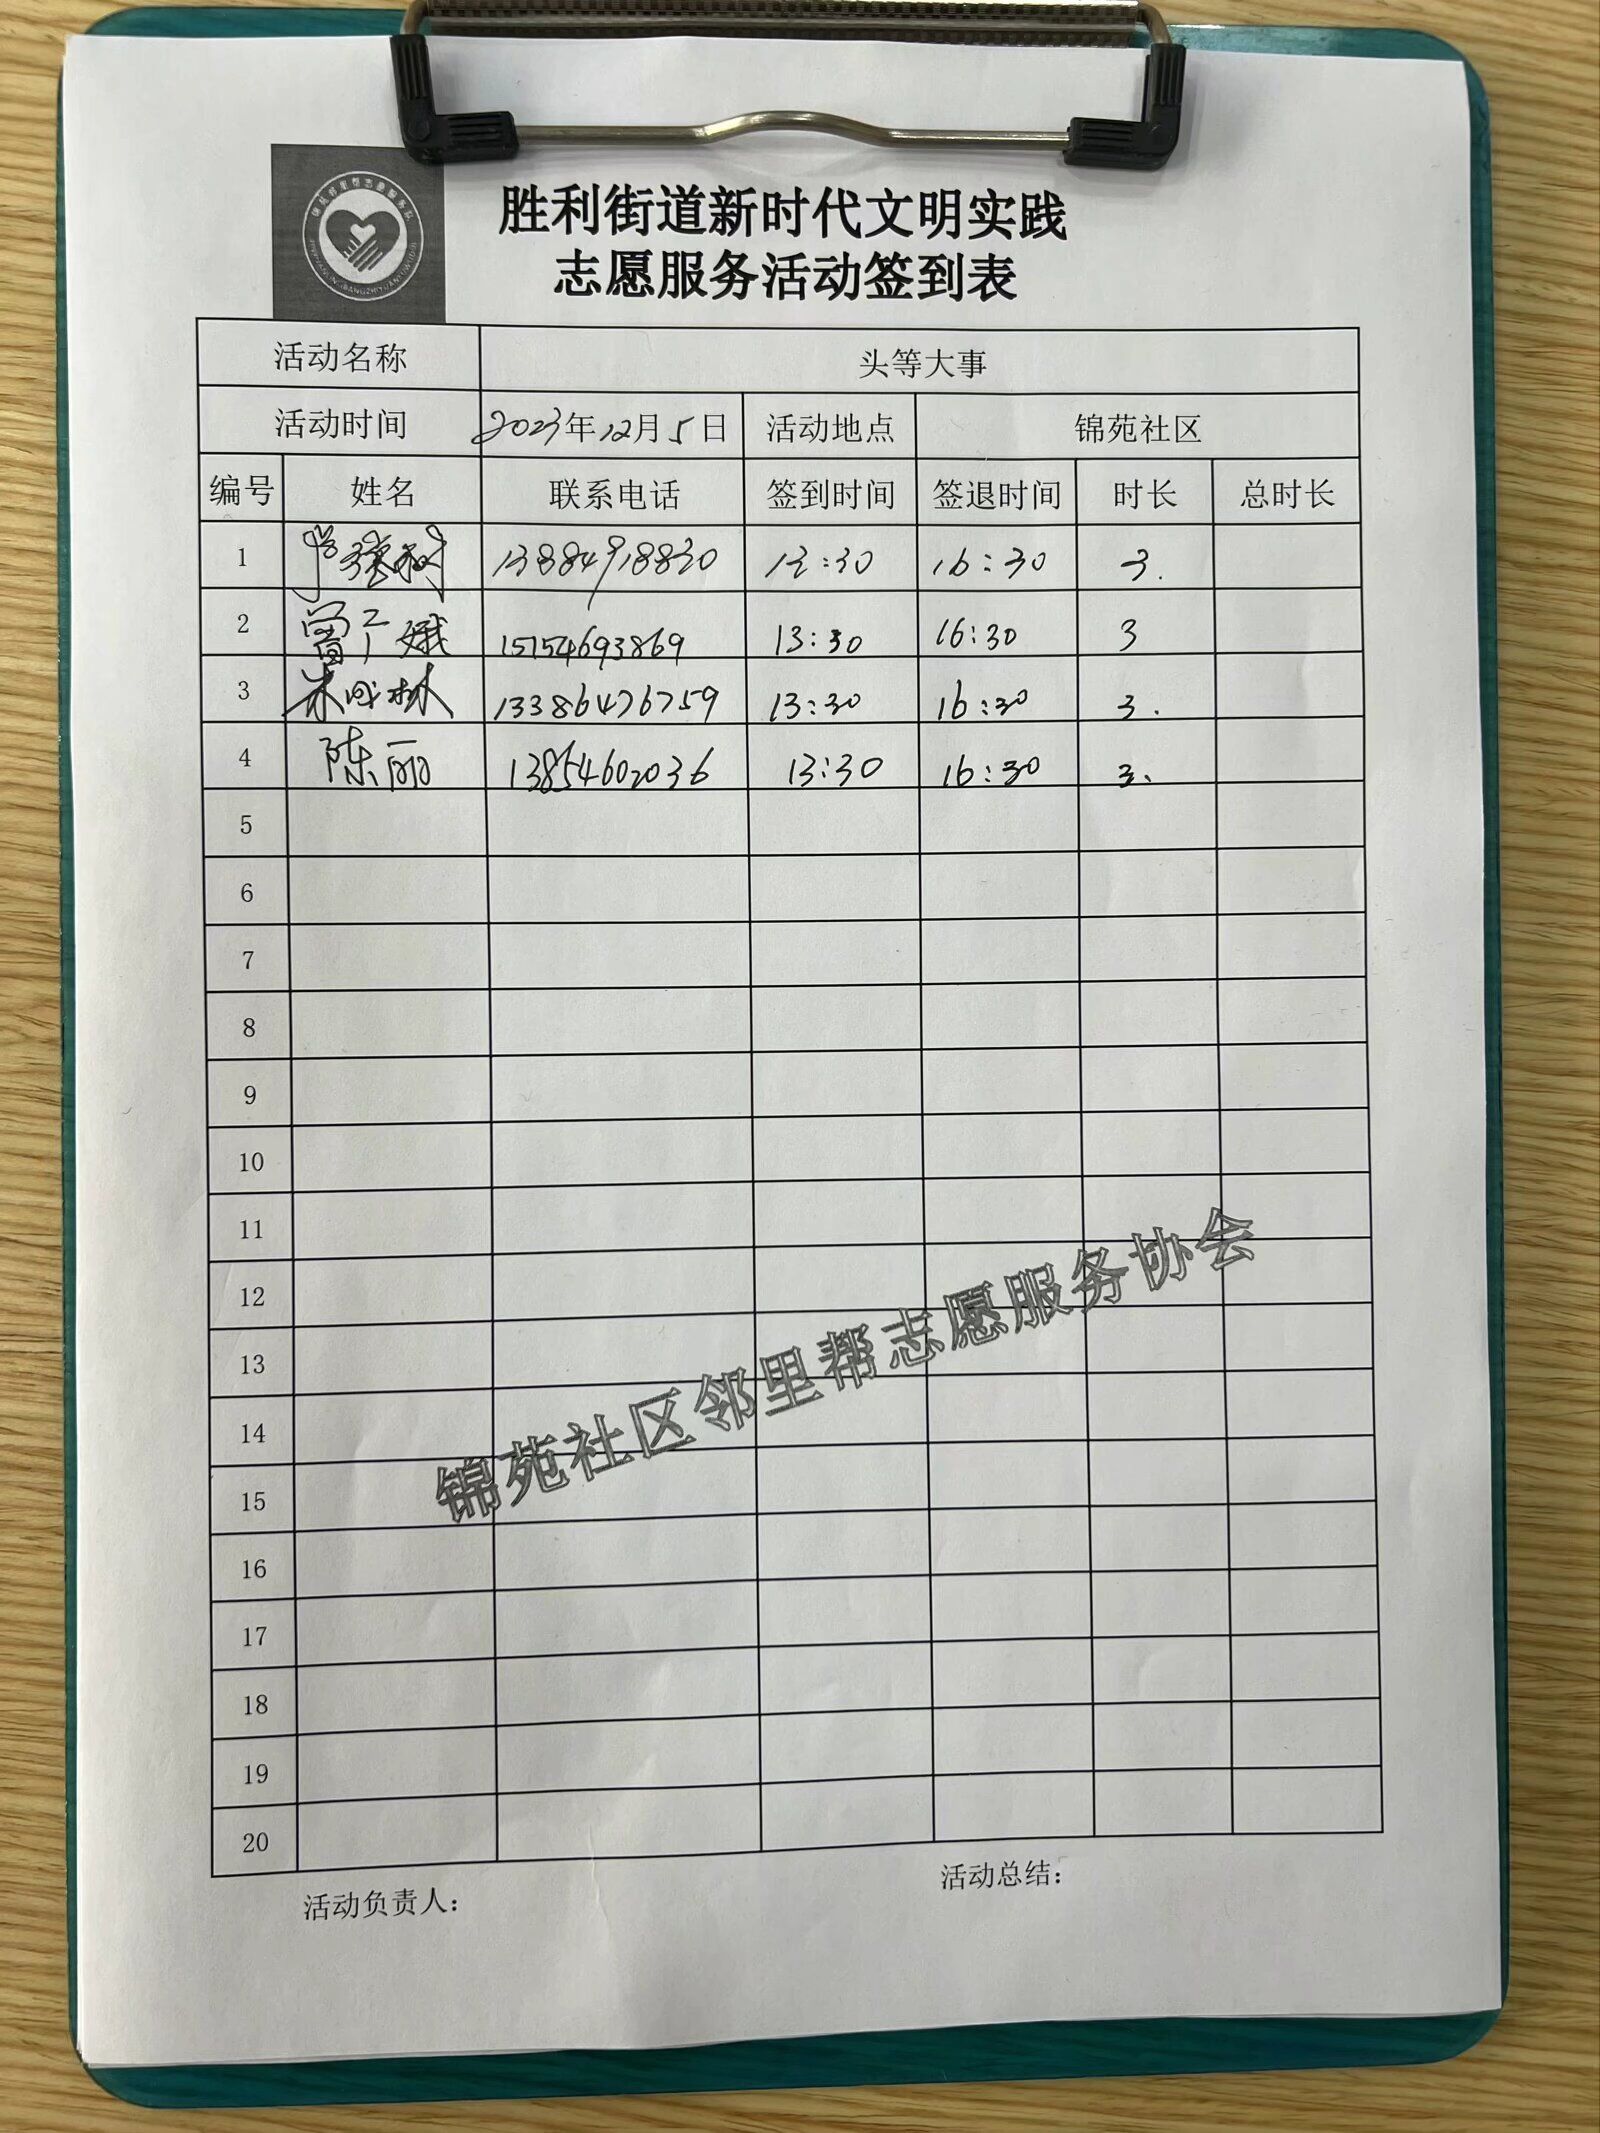 锦苑邻里帮志愿服务队
胜利街道新时代文明实践
志愿服务活动签到表
活动名称 头等大事
活动时间 2023年12月5日 活动地点 锦苑社区
编号 姓名 联系电话 签到时间 签退时间 时长 总时长
1 13884918830 13:30 16:30 3.
2 曾广娥 15154693869 13:30 16:30 3
3 朱成林 13386476759 13:30 16:30 3.
4 陈丽 13854602036 13:30 16:30 3.
5
6
7
8
9
10
11
12
13
14
15
16
17
18
19
20
锦苑社区邻里帮志愿服务协会
活动负责人：
活动总结：